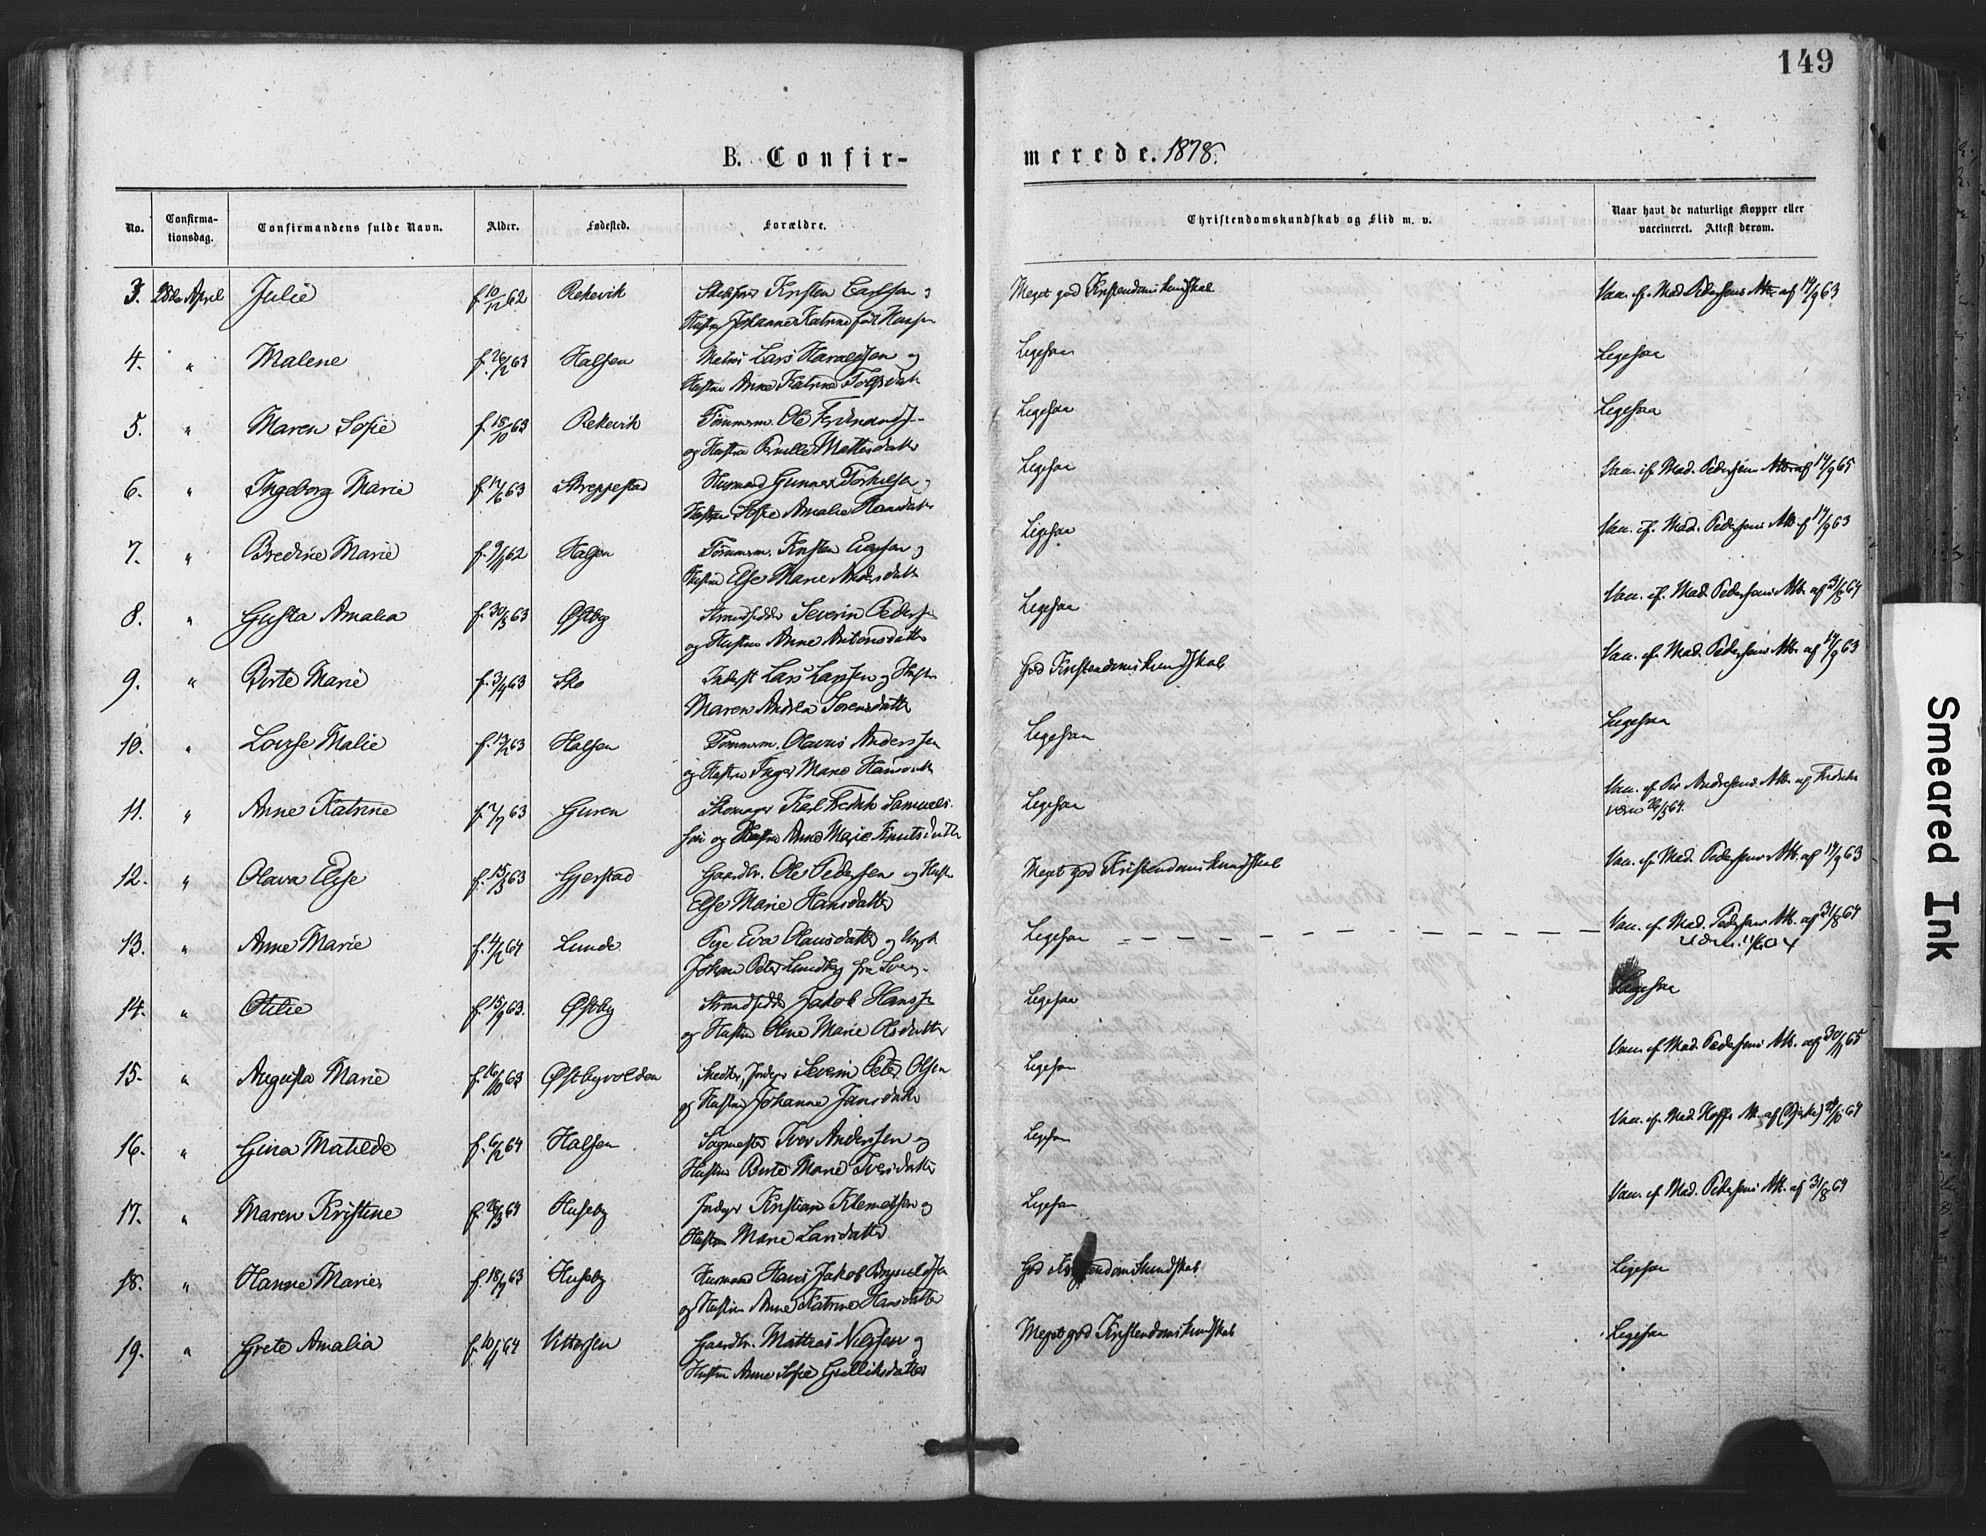 149
B. Confir-
merede. 1878.
No.
Confirma-
tionsdag.
Confirmandens fulde Navn.
Alder.
Fødested.
Forældre.
Christendomskundskab og Flid m. v.
Naar havt de naturlige Kopper eller
vaccineret. Attest derom.
3. 28de April Julie f. 10/12 62 Rekevik Kristen Carlsen og
Hustru Johanne Katrine
Meget god Kristendomskundskab
Vac. if. Mad. Pedersens Att. af 14/9 63
4. " Malene f. 26/2 63 Halsen Matros Lars og
Hustru Anne Katrine
Ligesaa
Ligesaa
5. " Maren Sofie f. 18/10 63 Rekevik Tømmerm. Ole
og Hustru Pernille
Ligesaa
Ligesaa
6. " Ingeborg Marie f. 17/6 63 Skreppestad Husmand Gunner Torkilsen og
Hustru Sofie Amalie Hansdatter
Ligesaa
Vac. if. Mad. Pedersens Att. af 14/9 65
7. " Bredine Marie f. 9/11 62 Halsen Tømmerm. Kristen og
Hustru Else Marie Andersdatter
Ligesaa
Vac. if. Mad. Pedersens Att. af 14/9 63
8. " Gusta Amalia f. 30/3 63 Østby Strandsidder Severin Pedersen
og Hustru Anne Antonsdatter
Ligesaa
Vac. if. Mad. Pedersens Att. af 31/8 64
9. " Berte Marie f. 3/9 63 Sko Inderst Lars Larssen og Hustru
Maren Andrea Sørensdatter
God Kristendomskundskab
Vac. if. Mad. Pedersens Att. af 14/9 63
10. " Lovise Malie f. 13/12 63 Halsen Tømmerm. Olavus Anderssen
og Hustru Inger Marie Hansdatter
Ligesaa
Ligesaa
11. " Anne Katrine f. 7/7 63 Guren Skomager Karl Fredrik Samuels-
sen og Hustru Anne Marie Knutsdatter
Ligesaa
Vac. if. Per Andersens Att. af Fredriks-
værn 26/3 64.
12. " Olava Elise f. 15/3 63 Gjerstad Gaardbr. Ole Pedersen og Hustru
Else Marie Hansdatter
Meget god Kristendomskundskab
Vac. if. Mad. Pedersens Att. af 14/9 63
13. " Anne Marie f. 4/2 64 Lunde Pige Eva Olausdatter og Ungk.
Johan Peter Lundby fra
Ligesaa
Vac. if. Mad. Pedersens Att. af 31/8 64
14. " Otilie f. 15/9 63. Østby Strandsidder Jakob Hanssen
og Hustru Oline Marie Olsdatter
Ligesaa
Ligesaa
15. " Augusta Marie f. 16/10 63 Østbyvolden Jordejer Severin Peter Olsen
og Hustru Johanne Jansdatter
Ligesaa
Vac. if. Mad. Pedersens Att. af 30/9 65
16. " Gina Matilde f. 6/2 64 Halsen Sagmester Iver Anderssen og
Hustru Berte Marie Iversdatter
Ligesaa
Vac. if. Mad. Hoffs Att. af
17. " Maren Kristine f. 26/3 64 Huseby Jordejer Kristian Klemetsen og
Hustru Marie Larsdatter
Ligesaa
Vac. if. Mad. Pedersens Att. af 31/8 64
18. " Hanne Marie f. 18/9 63 Huseby Husmand Hans Jakob Brynildsen
og Hustru Anne Katrine Hansdatter
God Kristendomskundskab
Ligesaa
19. " Grete Amalia f. 10/1 64 Vittersen Gaardbr. Mattias Nilssen og
Hustru Anne Sofie Gulliksdatter
Meget god Kristendomskundskab
Ligesaa
Smeared Ink